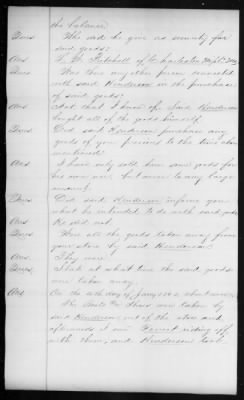 the balance.
Ques Who did he give as security for
said goods?
Ans
Ques Was there any other person connected
with said Henderson in the purchase
of said goods?
Ans Not that I know of. Said Henderson
bought all of the goods himself.
Ques Did said Henderson purchase any
goods of you previous to the time above
mentioned
Ans I have only sold him some goods for
his own use but never to any large
amount.
Ques Did said Henderson inform you
what he intended to do with said goods
Ans He did not
Ques Were all the goods taken away from
your store by said Henderson?
Ans They were
Ques State at what time the said goods
were taken away.
Ans On the 10th day of Jany
The Boots & Shoes were taken by
said Henderson out of the store and
afterwards I saw riding off
with them, and Henderson took